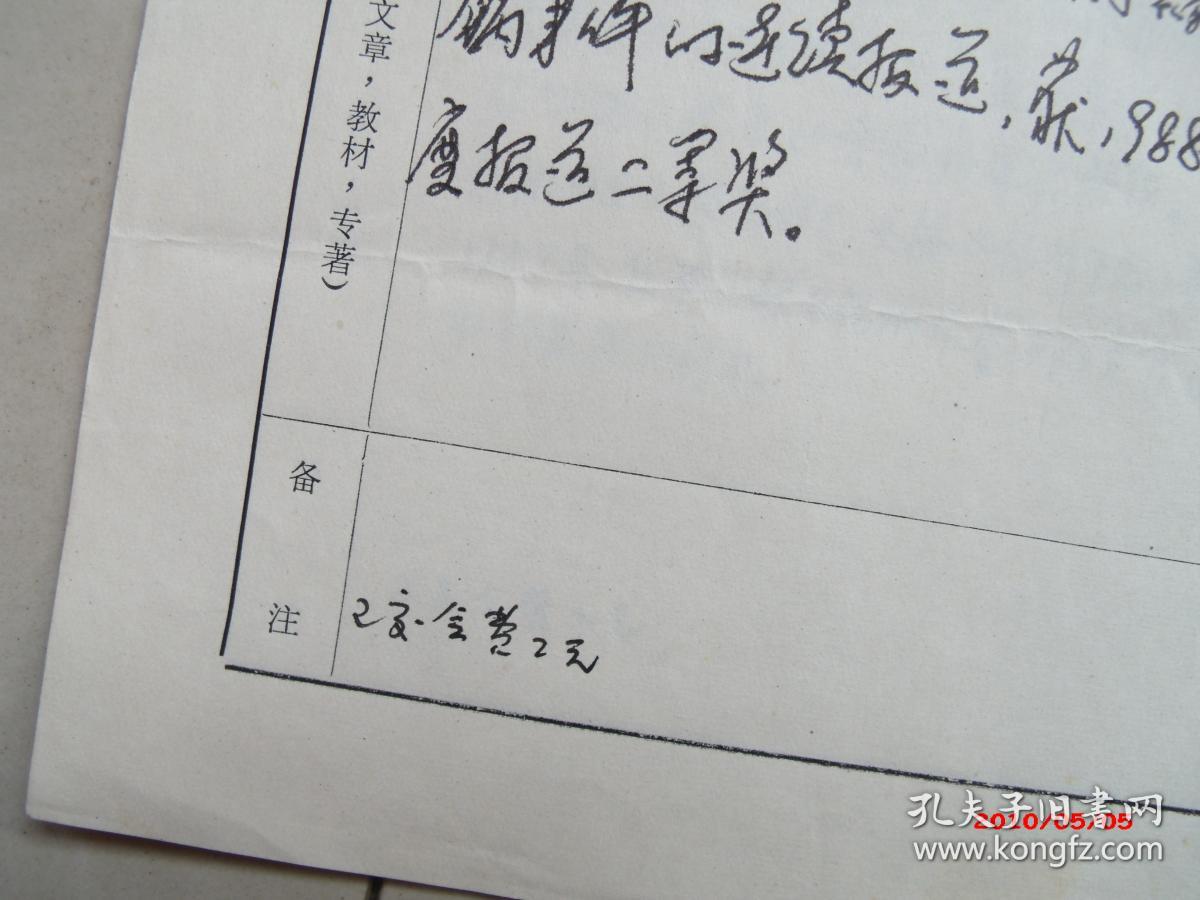 文章，教材，专著）
事件的连续报道，获1988
度报道二等奖。
备注
已交会费2元
孔夫子旧书网
2010/05/05
www.kongfz.com